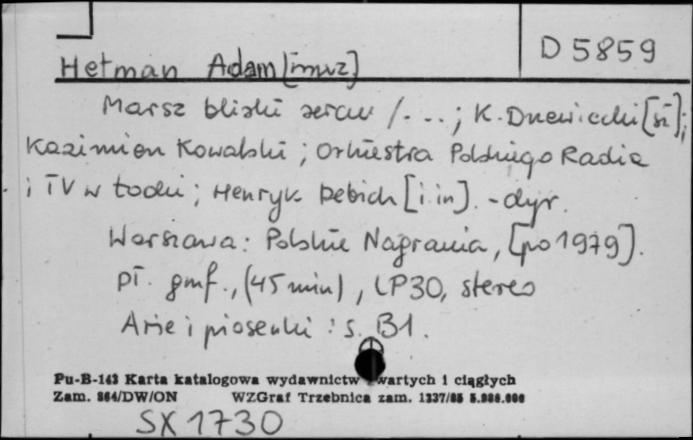 D 5859
Hetman Adam [muz]
Marsz bliski sercu /...; K. Dnewiecki [sł];
Kazimierz Kowalski; Orkiestra Polskiego Radia
i TV w Łodzi; Henryk Debich [i in]. - dyr.
Warszawa: Polskie Nagrania, [po 1979].
Pł. gmf., (45 min), LP30, stereo
Arie i piosenki: s. B1.
Pu-B-143 Karta katalogowa wydawnictw zwartych i ciągłych
Zam. 864/DW/ON WZGraf Trzebnica zam. 1337/85 5.000.000
SX 1730